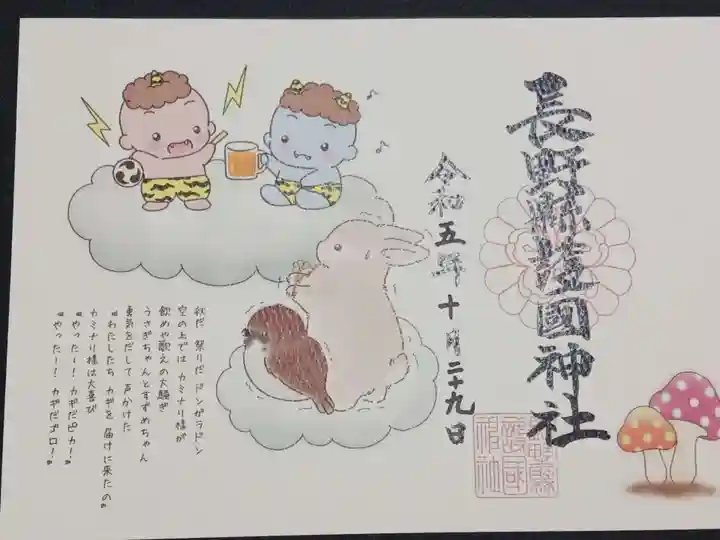 長野縣護國神社
令和五年十月二十九日
秋だ 祭りだ ドンガラドン
空の上では カミナリ様が
飲めや歌えの大騒ぎ
うさぎちゃんとすずめちゃん
勇気をだして 声かけた
"わたしたち カギを 届けに来たの"
カミナリ様は大喜び
"やったー! カギだピカー!"
"やったー! カギだゴロー!"